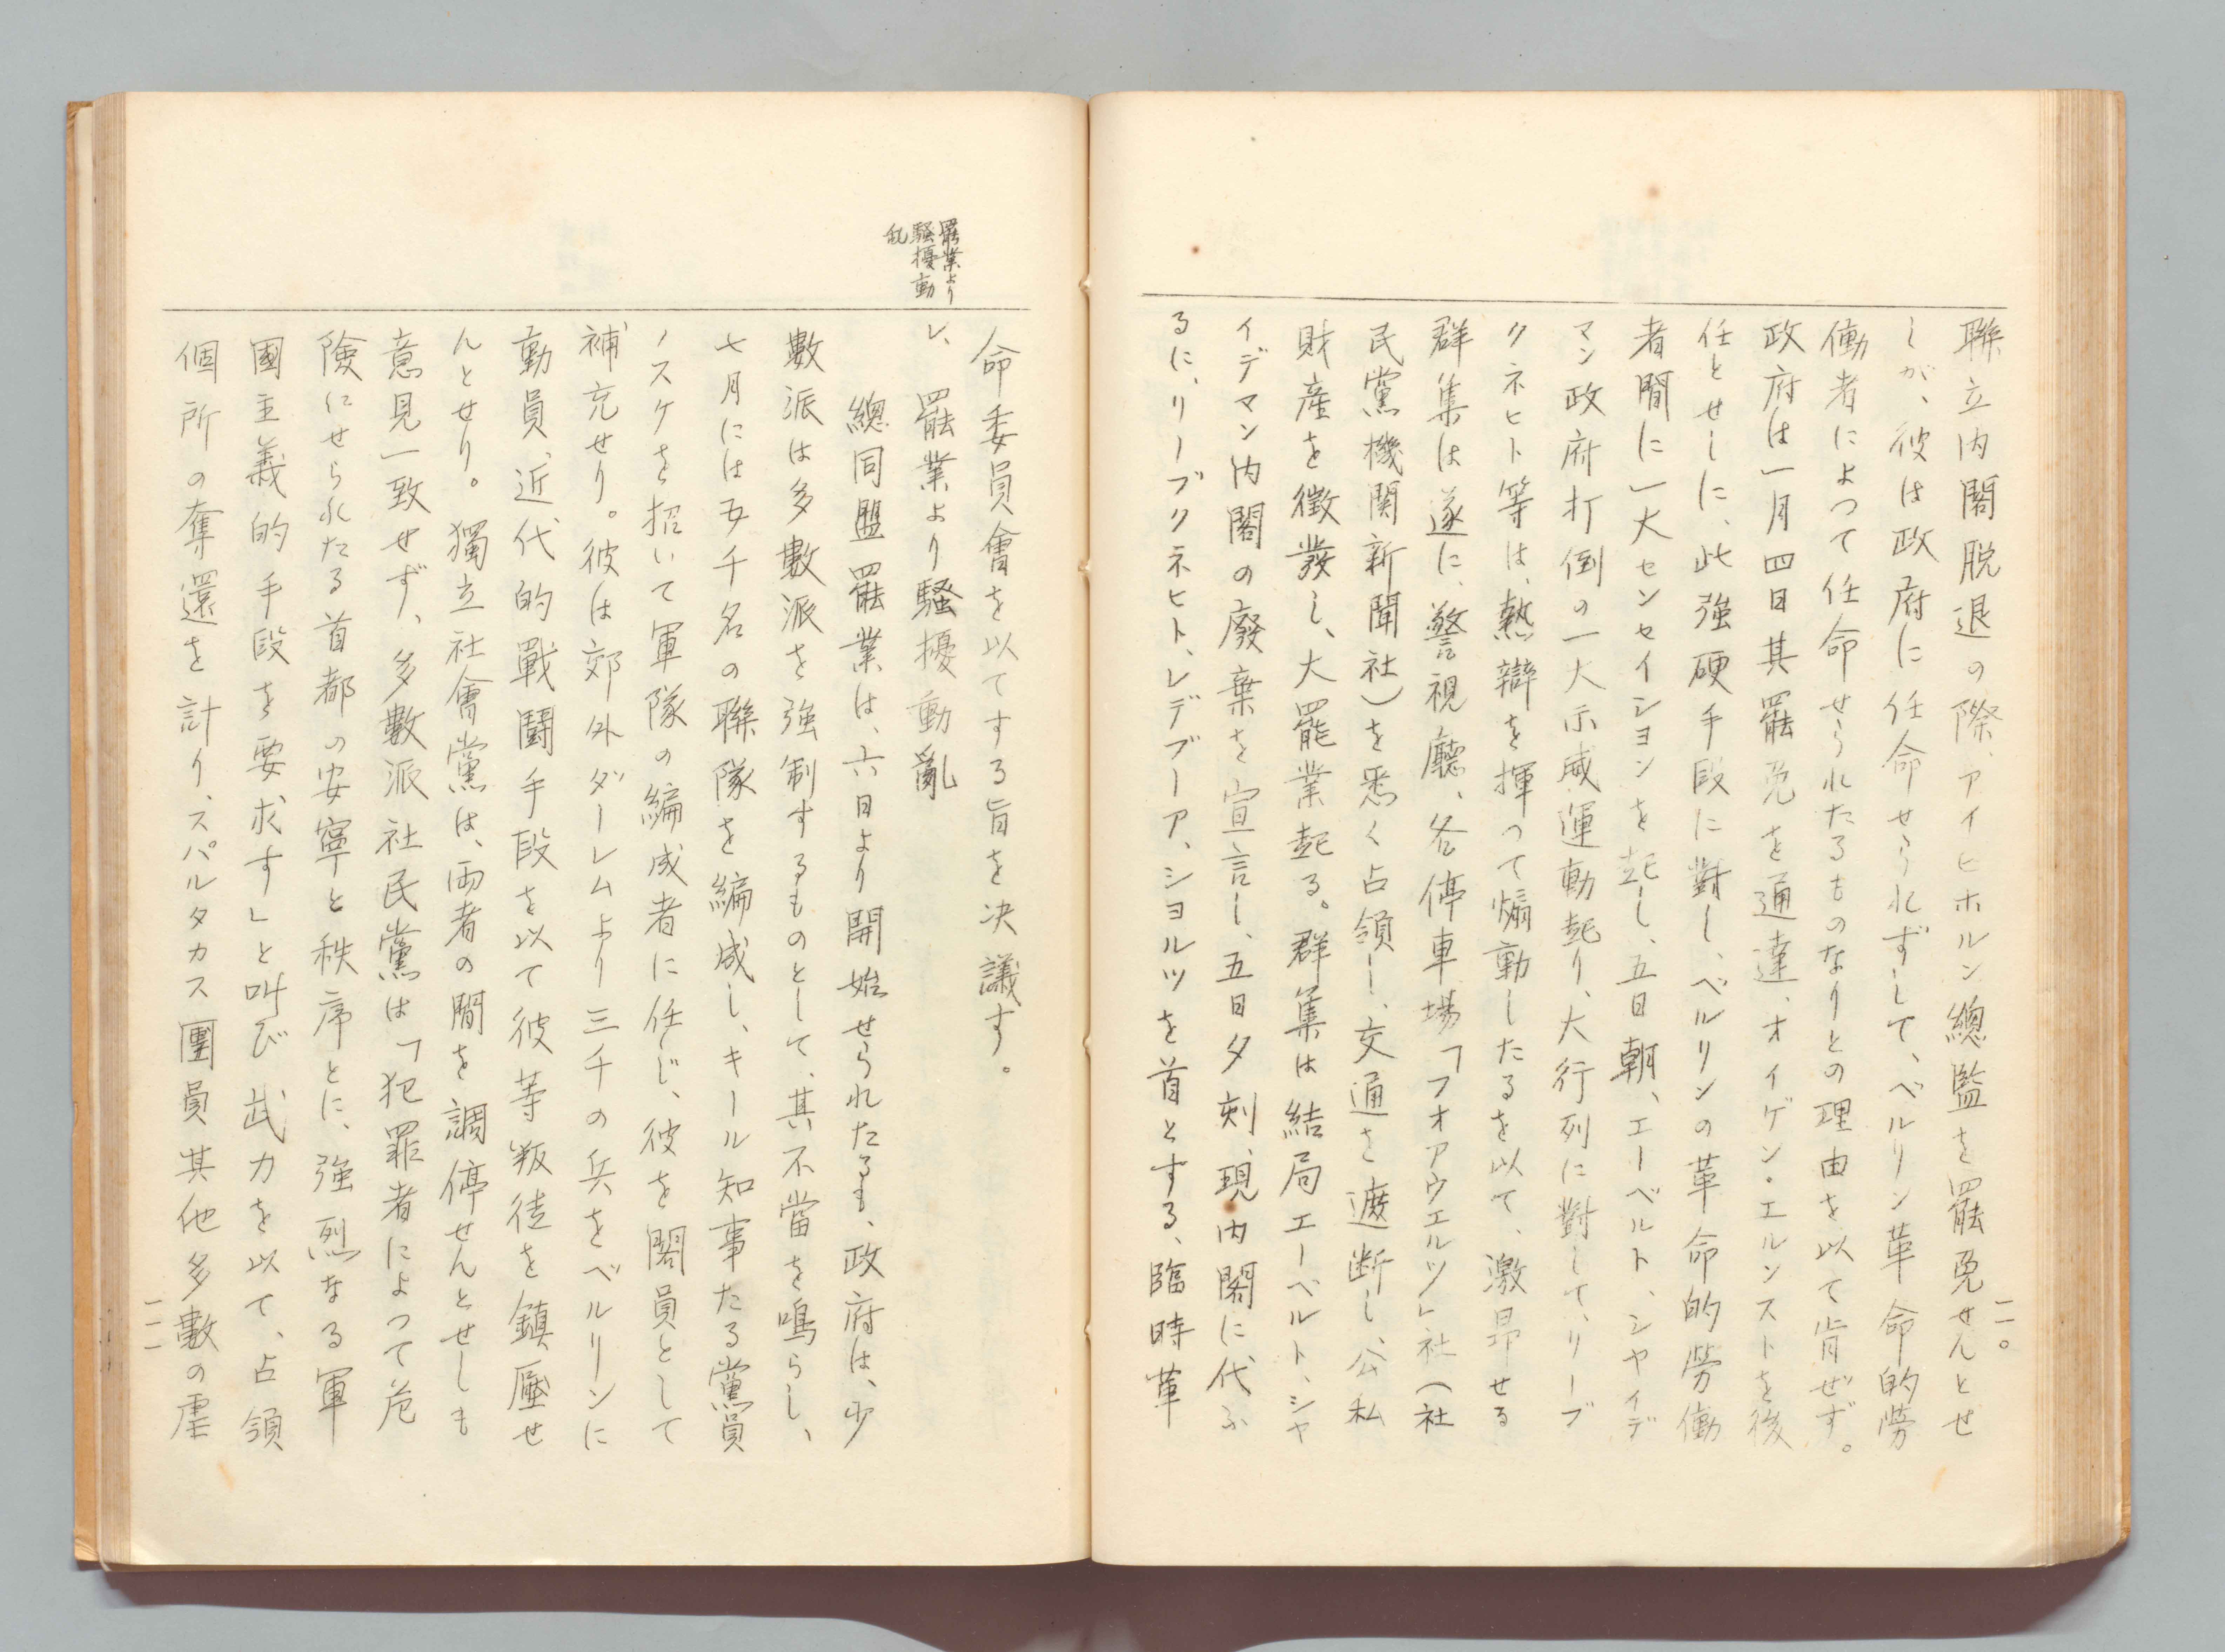 一一〇
聯立内閣脱退の際、アイヒホルン總監を罷免せんとせ
しが、彼は政府に任命せられずして、ベルリン革命的勞
働者によつて任命せられたるものなりとの理由を以て肯ぜず。
政府は一月四日其罷免を通達、オイゲン・エルンストを後
任とせしに、此强硬手段に對し、ベルリンの革命的勞働
者間に一大センセイシヨンを起し、五日朝、エーベルト、シヤイデ
マン政府打倒の一大示威運動起り、大行列に對して、リーブ
クネヒト等は、熱辯を揮つて煽動したるを以て、激昂せる
群集は遂に、警視廳、各停車場「フオアウエルツ」社（社
民黨機関新聞社）を悉く占領し、交通を遮断し、公私
財產を徵發し、大罷業起る。群集は結局エーベルト、シヤ
イデマン内閣の廢棄を宣言し、五日夕刻、現内閣に代ふ
るに、リーブクネヒト、レデブーア、シヨルツを首とする、臨時革
命委員會を以てする旨を决議す。
罷業より
騷擾動
乱
レ、罷業より騷擾動亂
總同盟罷業は、六日より開始せられたるも、政府は、少
數派は多數派を强制するものとして、其不當を鳴らし、
七月には五千名の聯隊を編成し、キール知事たる黨員
ノスケを招いて軍隊の編成者に任じ、彼を閣員として
補充せり。彼は郊外ダーレムより三千の兵をベルリンに
動員、近代的戰鬪手段を以て彼等叛徒を鎮壓せ
んとせり。獨立社會黨は、両者の間を調停せんとせしも
意見一致せず、多數派社民黨は「犯罪者によつて危
険にせられたる首都の安寧と秩序とに、强烈なる軍
國主義的手段を要求す」と叫び武力を以て、占領
個所の奪還を計り、スパルタカス團員其他多數の虐
一一一